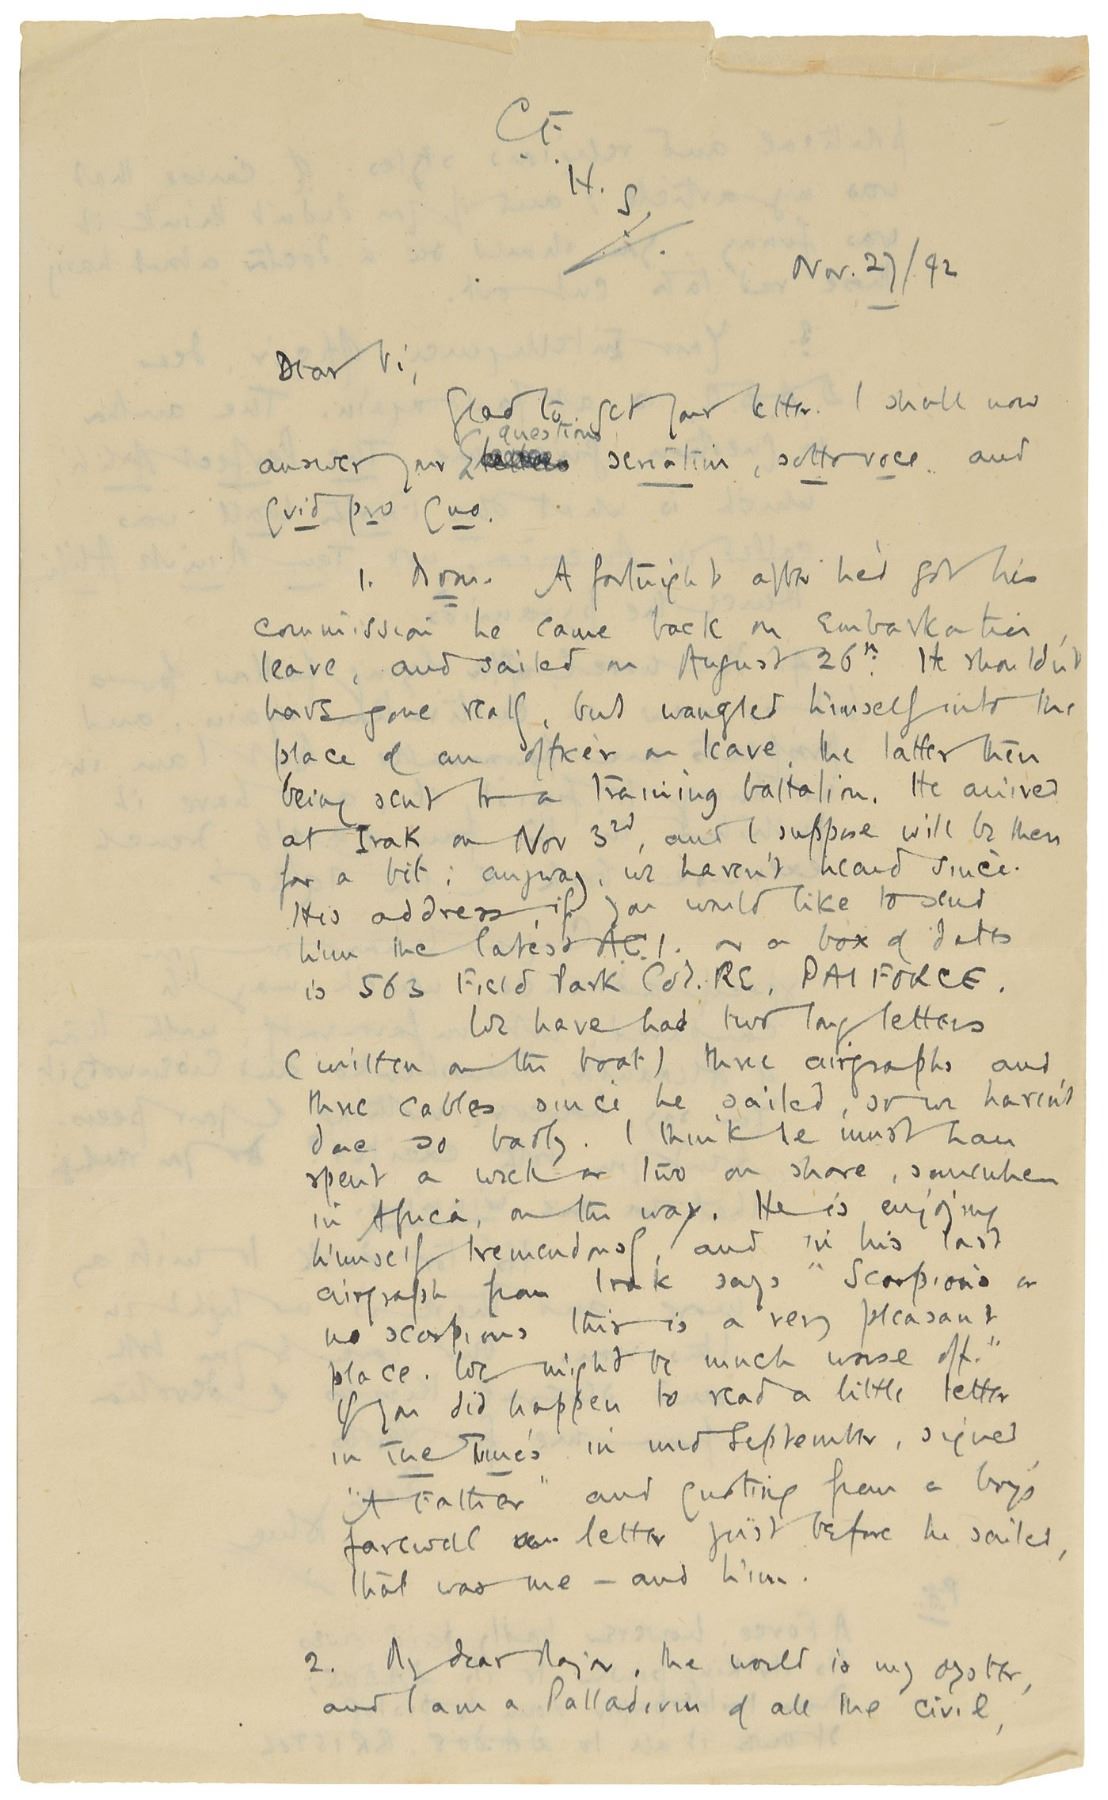 C.F.
H.
S.
Nov. 27/42
Dear Vi,
Glad to get your letter. I shall now
questions
answer your seriatim, sotto voce and
quid pro quo.
1. Mom. A fortnight after he'd got his
commission he came back on Embarkation
leave, and sailed on August 26th. He shouldn't
have gone really, but wangled himself into the
place of an officer on leave, the latter then
being sent to a training battalion. He arrived
at Irak on Nov 3rd, and I suppose will be there
for a bit; anyway, we haven't heard since.
His address, if you would like to send
him the latest A.C.I. or a box of dates
is 563 Field Park Coy. RE, PAIFORCE.
We have had two long letters
(written on the boat) three airgraphs and
three cables since he sailed, so we haven't
done so badly. I think he must have
spent a week or two on shore, somewhere
in Africa, on the way. He is enjoying
himself tremendously, and in his last
airgraph from Irak says "Scorpions or
no scorpions this is a very pleasant
place. We might be much worse off."
If you did happen to read a little letter
in The Times in mid September, signed
"A Father" and quoting from a boy's
farewell letter just before he sailed,
that was me – and him.
2. My dear Major, the world is my oyster,
and I am a Palladium of all the civil,